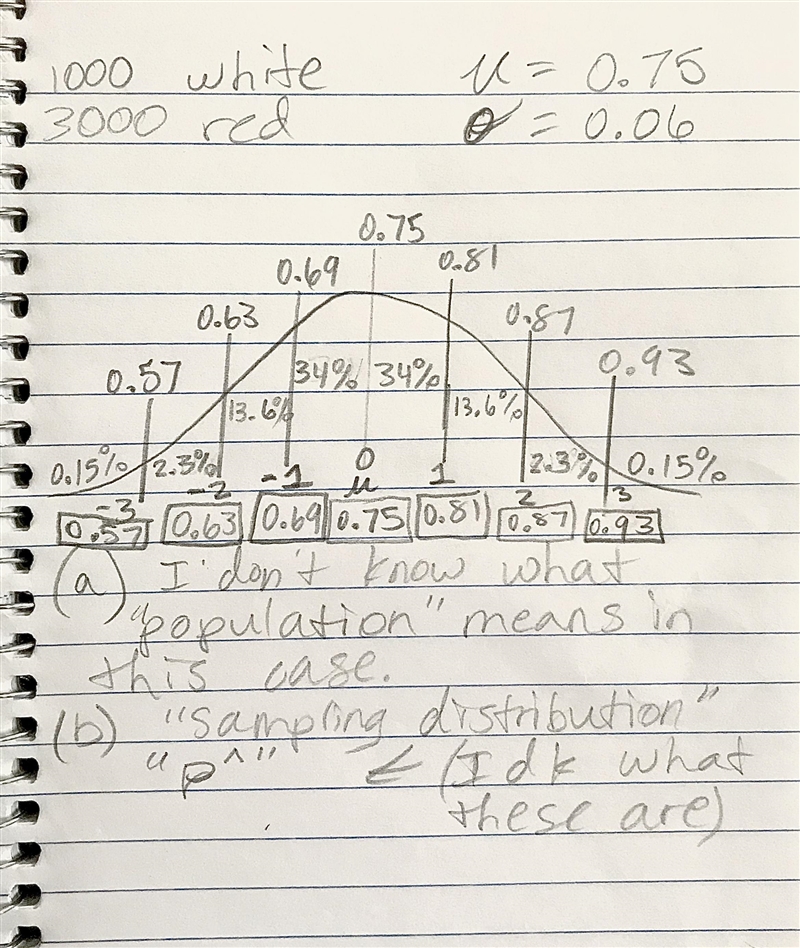 1000 white μ = 0.75
3000 red σ = 0.06
0.75
0.69 0.81
0.63 0.87
0.57 0.93
34% 34%
13.6% 13.6%
0.15% 2.3% 2.3% 0.15%
-3 -2 -1 0 1 2 3
μ
0.57 0.63 0.69 0.75 0.81 0.87 0.93
(a) I don't know what
"population" means in
this case.
(b) "Sampling distribution"
"p^" ← (Idk what
these are)